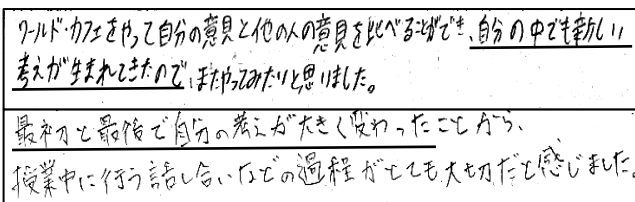 ワールド・カフェをやって自分の意見と他の人の意見を比べることができ、自分の中でも新しい
考えが生まれてきたので、またやってみたいと思いました。
最初と最後で自分の考えが大きく変わったことから、
授業中に行う話し合いなどの過程がとても大切だと感じました。